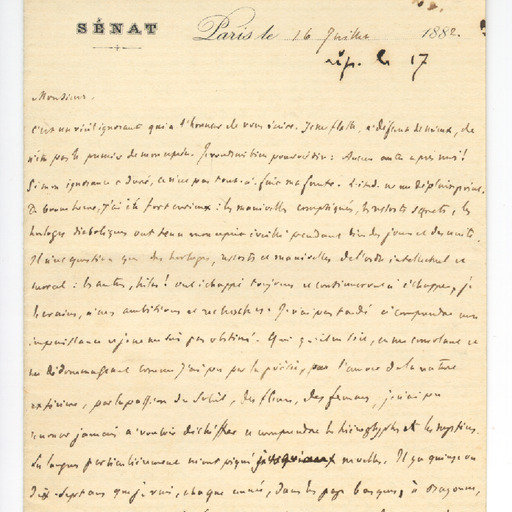 SÉNAT
Paris le 16 Juillet 1882.
rép. le 17
Monsieur,
c'est un vieil ignorant qui a l'honneur de vous écrire. Je me flatte, à défaut de mieux, de
n'être pas le premier de mon espèce. Je voudrais bien pouvoir dire: Aucun autre après moi!
Si mon ignorance a duré, ce n'est pas tout-à-fait ma faute. L'étude ne me déplairait pas.
De bonne heure, j'ai été fort curieux: les manivelles compliquées, les ressorts secrets, les
horloges diaboliques ont tenu mon esprit éveillé pendant bien des jours et des nuits.
Il n'est question que des horloges, ressorts et manivelles de l'ordre intellectuel et
moral: les autres, hélas! ont échappé toujours et continueront à échapper, je
le crains, à mes ambitions et recherches. J'ai pas tardé à comprendre mon
impuissance et je ne suis pas obstiné. Quoi qu'il en soit, en me consolant et
me dédommageant comme j'ai pu par la poésie, par l'amour de la nature
extérieure, par la passion du soleil, des fleurs, des femmes, je n'ai pu
renoncer jamais à vouloir déchiffrer et comprendre les hiéroglyphes et les mystères.
Les langues particulièrement m'ont piqué jusqu'aux moelles. Il y a quinze ou
dix-sept ans que je vais, chaque année, dans les pays basques, à Bayonne,